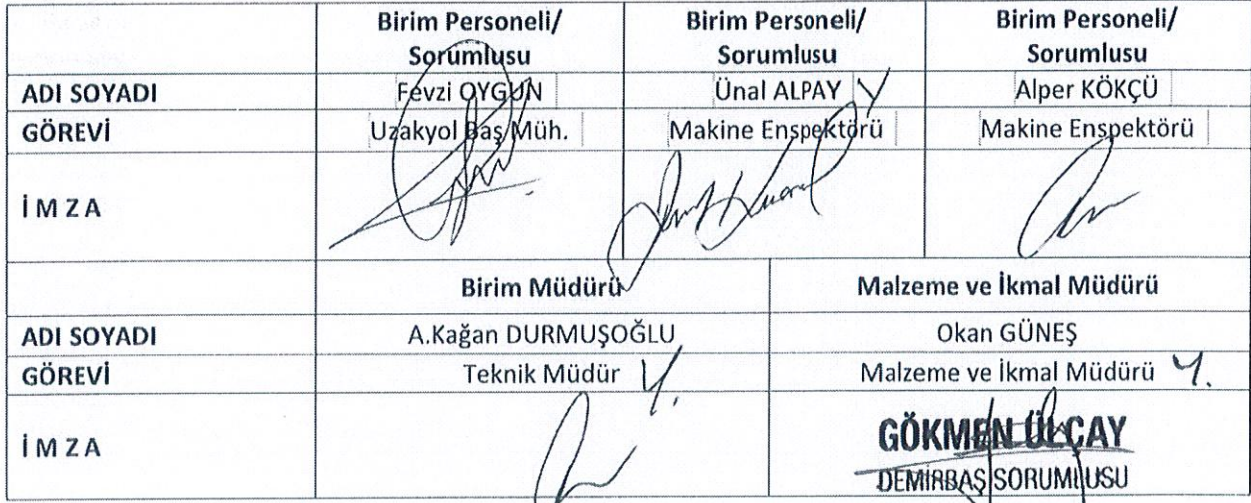 Birim Personeli/ Birim Personeli/ Birim Personeli/
Sorumlusu Sorumlusu Sorumlusu
ADI SOYADI Fevzi OYGUN Ünal ALPAY Y Alper KÖKÇÜ
GÖREVİ Uzakyol Baş Müh. Makine Enspektörü Makine Enspektörü
İ M Z A
Birim Müdürü Malzeme ve İkmal Müdürü
ADI SOYADI A.Kağan DURMUŞOĞLU Okan GÜNEŞ
GÖREVİ Teknik Müdür Y. Malzeme ve İkmal Müdürü Y.
İ M Z A
GÖKMEN ÜLÇAY
DEMİRBAŞ SORUMLUSU